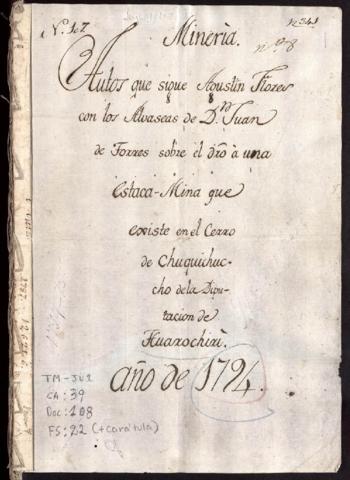 Nº. 127
n 341
Minerìa.
nº 8
Autos que sigue Agustin Flores
con los Alvaseas de D.n Juan
de Torres sobre el dro à una
estaca-Mina que
existe en el Cerro
de Chuquihuc-
cho de la Dipu-
tacion de
Huarochirì.
año de 1794.
TM-JU1
CA: 39
Doc: 108
FS: 22 (+carátula)